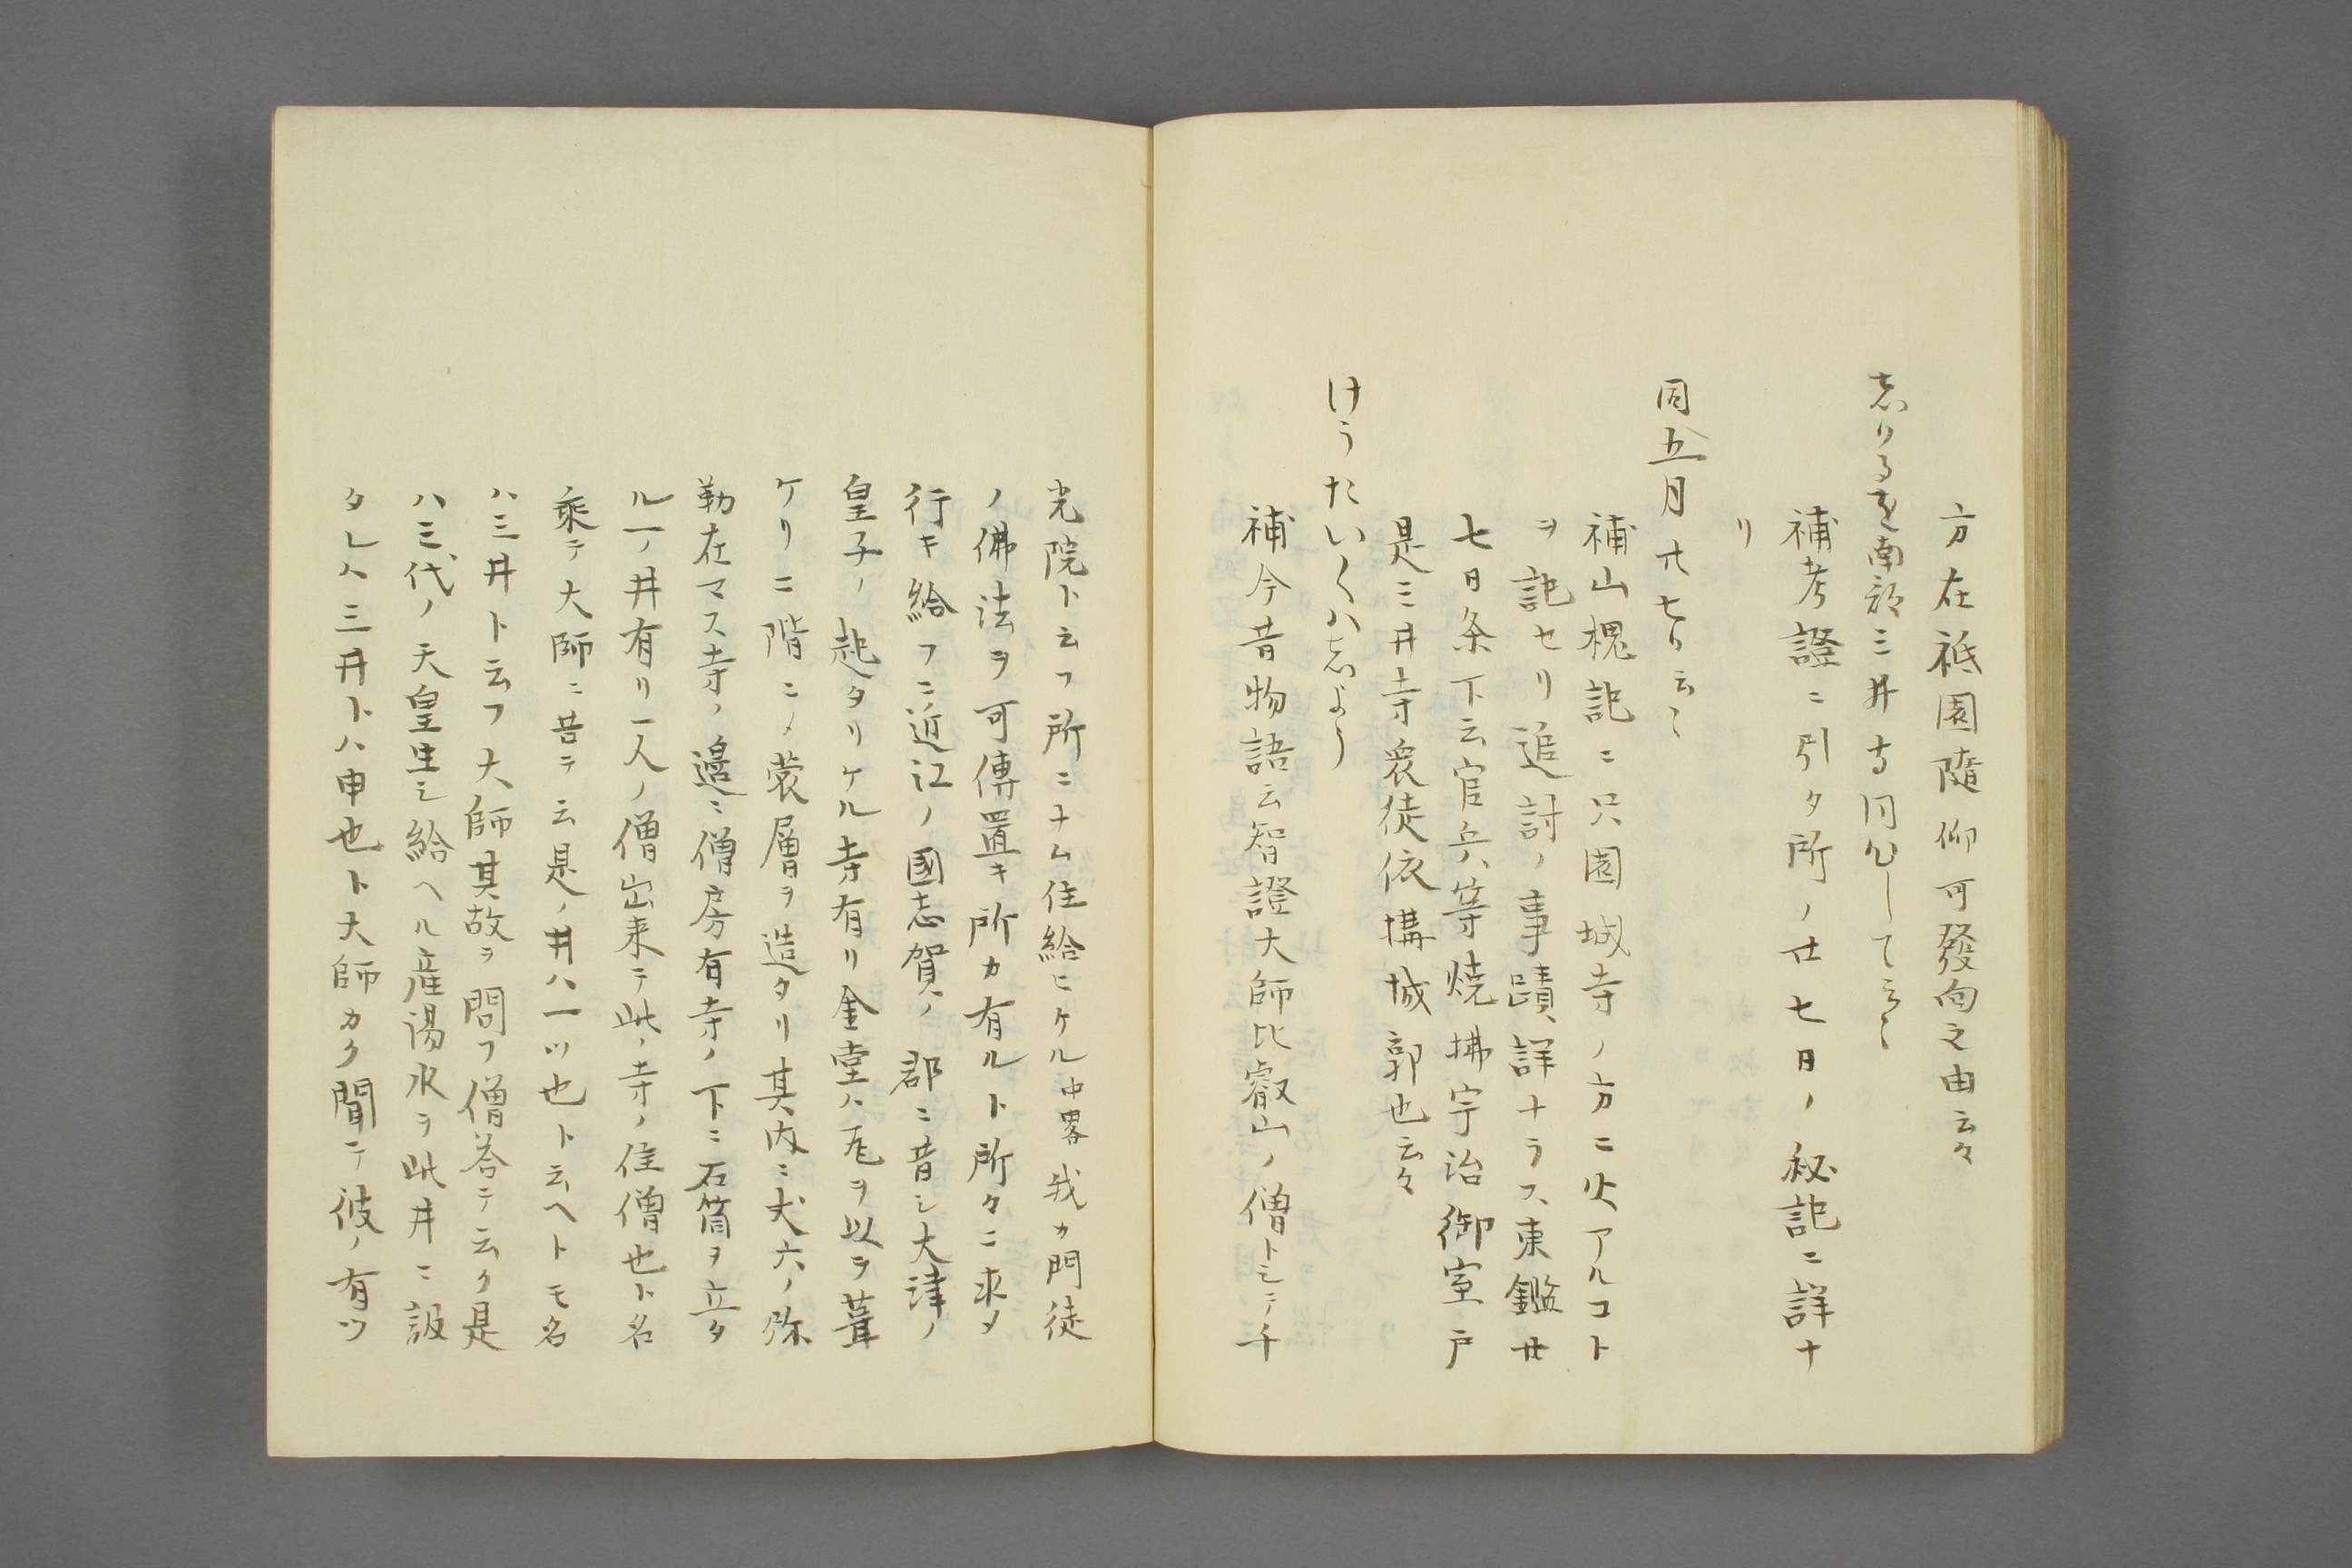 方在祗園隨仰可發向之由云々
志かるを南都三井寺同心して云々
補考證ニ引タ所ノ廿七日ノ秘記ニ詳ナ
リ
同五月廿七日云々
補山槐記ニ只園城寺ノ方ニ火アルコト
ヲ記セリ追討ノ事蹟詳ナラス東鑑廿
七日条下云官兵等焼拂宇治御室戸
是三井寺衆徒依構城郭也云々
けうたいくハ志よう
補今昔物語云智證大師比叡山ノ僧トシテ千
光院ト云フ所ニナム住給ヒケル中畧我カ門徒
ノ佛法ヲ可傳置キ所カ有ルト所々ニ求メ
行キ給フニ近江ノ國志賀ノ郡ニ昔シ大津ノ
皇子ノ起タリケル寺有リ金堂ハ瓦ヲ以ヲ葺
ケリ二階ニノ裳層ヲ造タリ其内ニ丈六ノ弥
勒在マス寺ノ邉ニ僧房有寺ノ下ニ石筒ヲ立タ
ル一ノ井有リ一人ノ僧出来テ此ノ寺ノ住僧也ト名
乗テ大師ニ告テ云是ノ井ハ一ツ也ト云ヘトモ名
ハ三井ト云フ大師其故ヲ問フ僧答テ云ク是
ハ三代ノ天皇生シ給ヘル産湯水ヲ此井ニ汲
タレハ三井トハ申也ト大師カク聞テ彼ノ有ツ